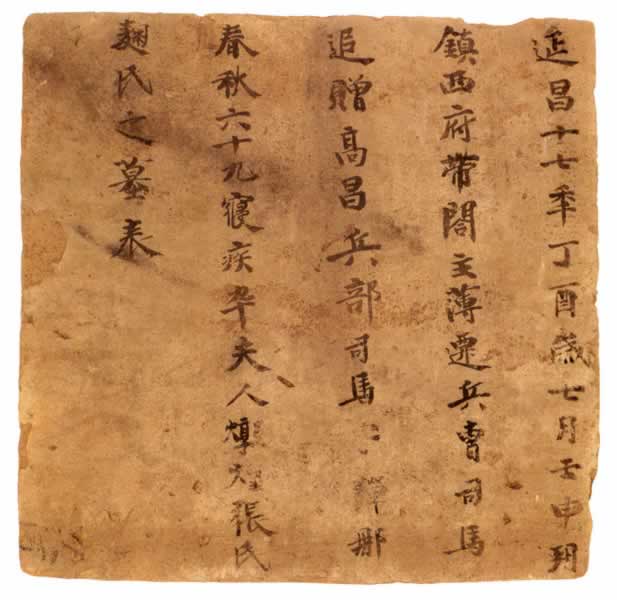 延昌十七季丁酉歲七月壬申朔
鎮西府帶閤主薄遷兵曹司馬
追贈高昌兵部司馬彈那
春秋六十九寢疾卒夫人燉煌張氏
麹氏之墓表